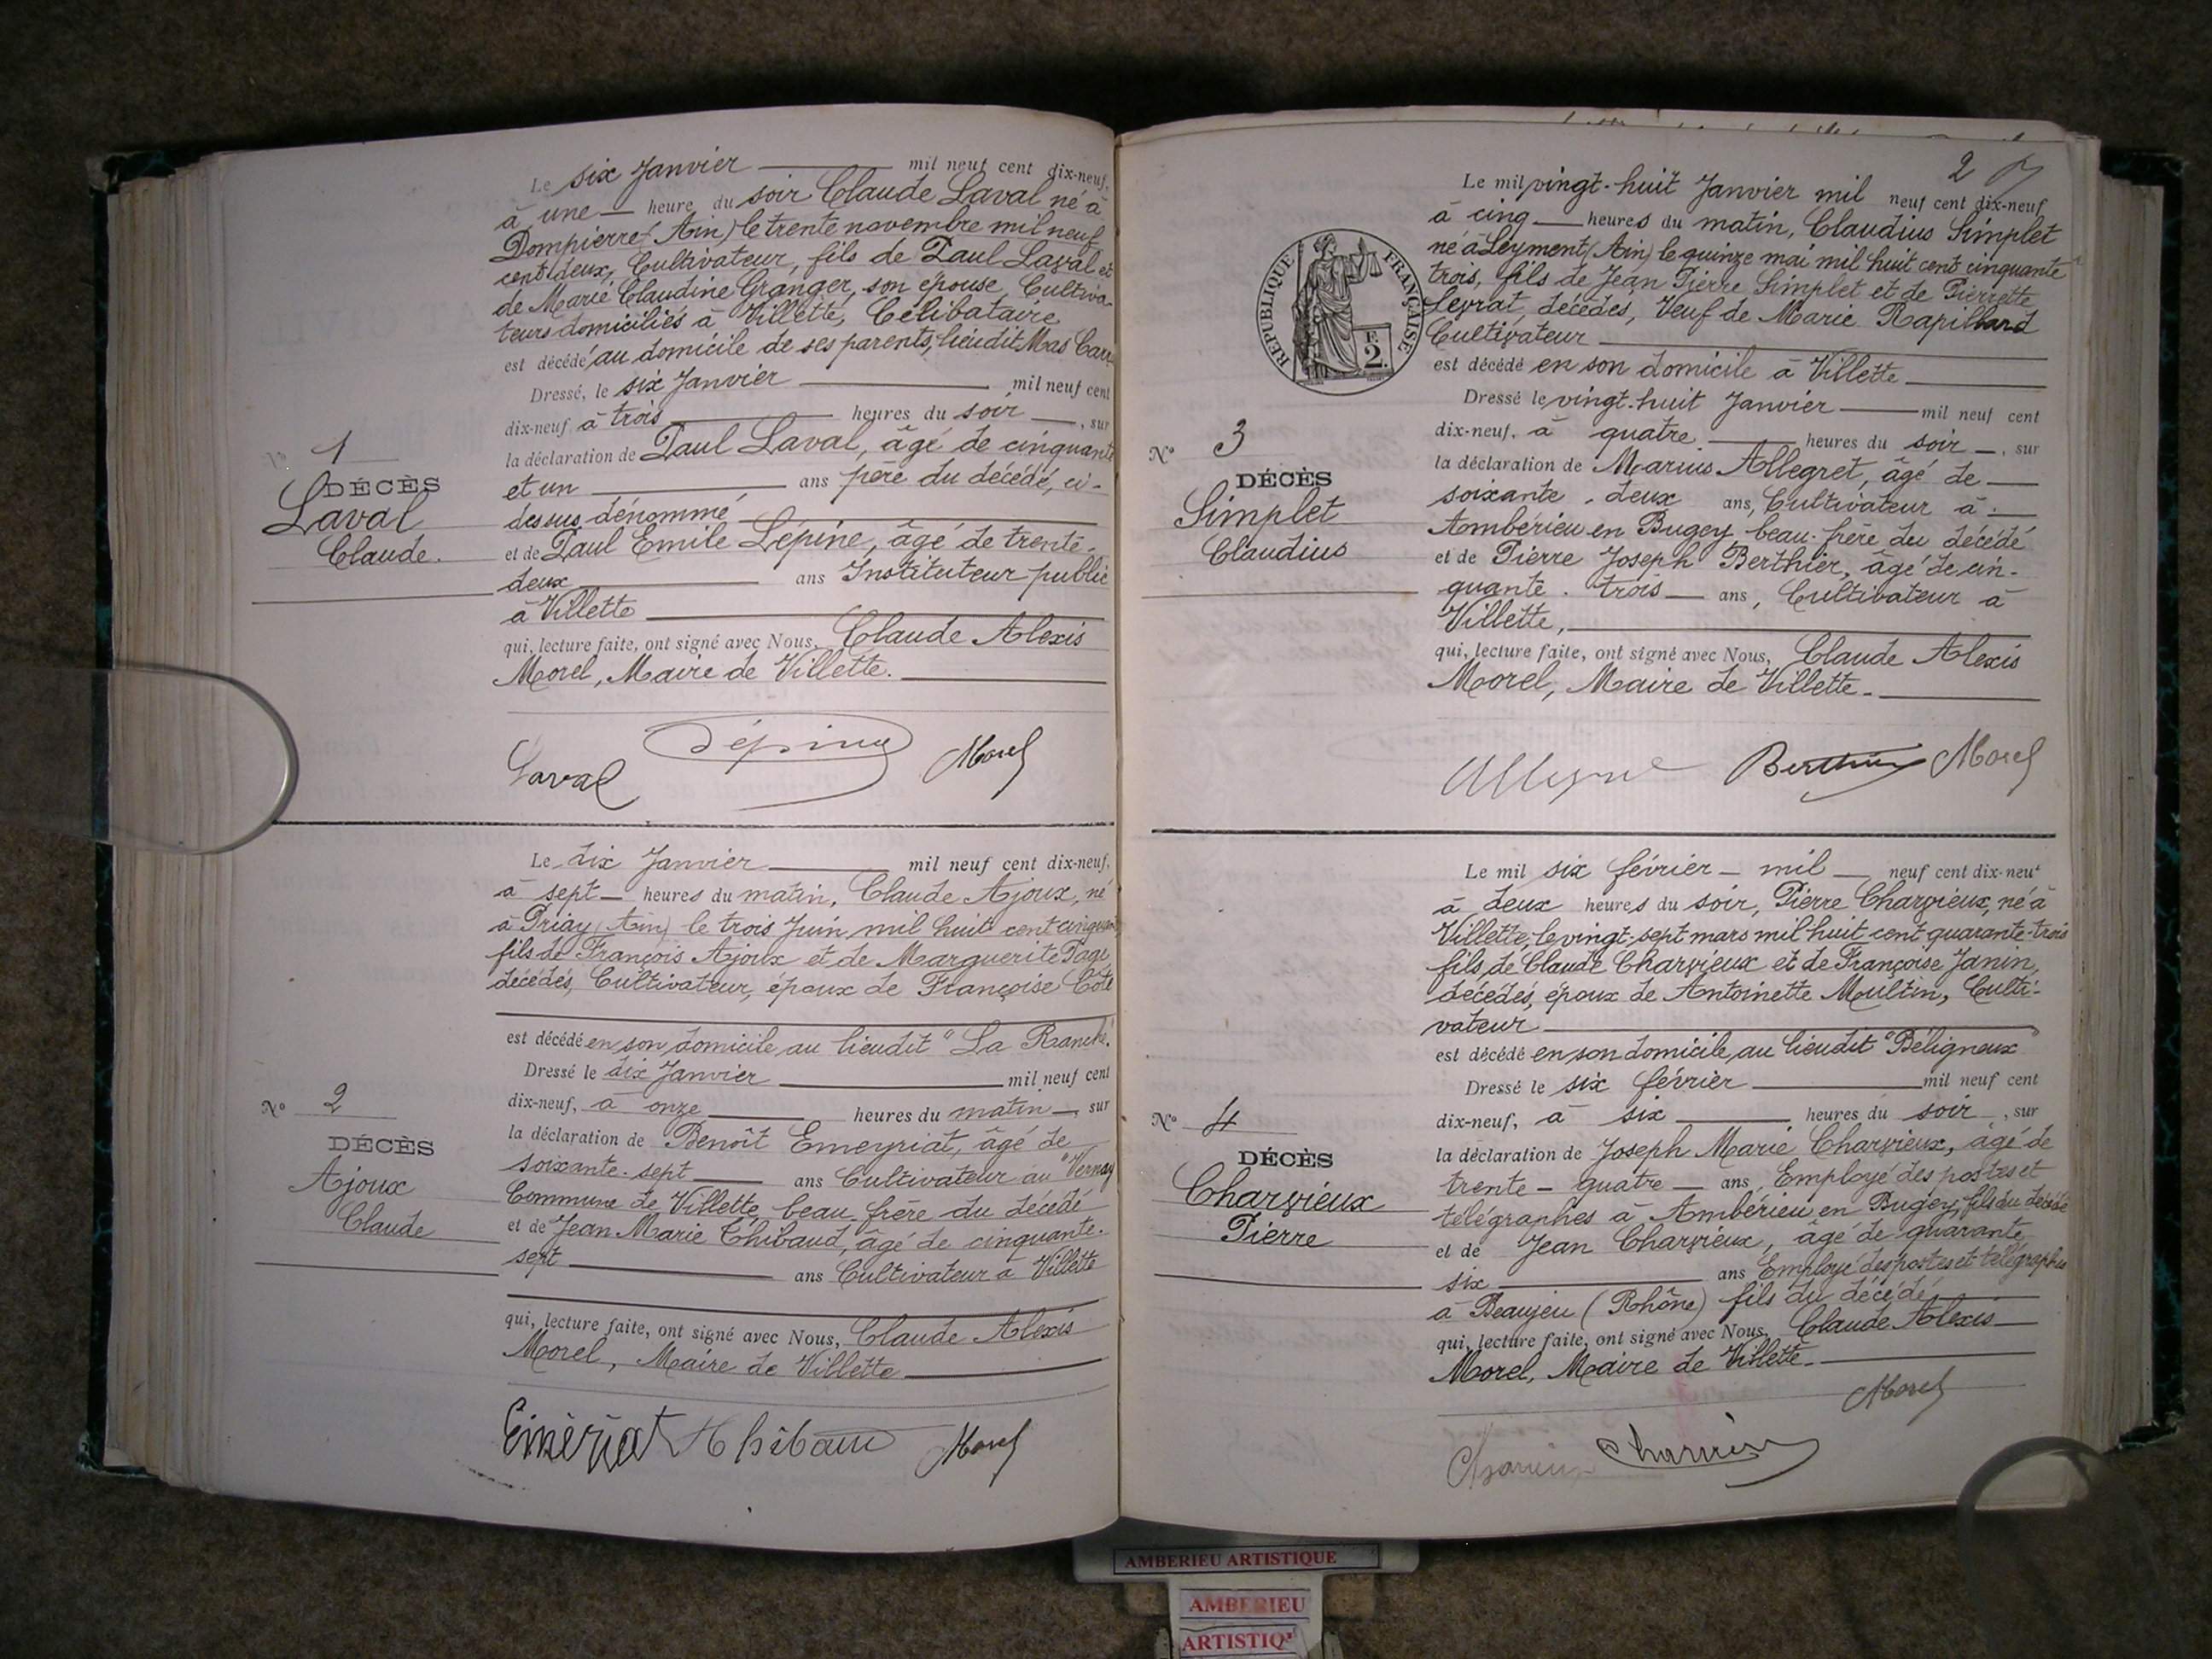 Le six Janvier mil neuf cent dix-neuf,
à une heure du soir Claude Laval né à
Dompierre (Ain) le trente novembre mil neuf
cent deux, Cultivateur, fils de Paul Laval et
de Marie Claudine Granger, son épouse Cultiva-
teurs domiciliés à Villette, Célibataire
est décédé au domicile de ses parents, lieudit Mas
Dressé, le six Janvier mil neuf cent
dix-neuf à trois heures du soir, sur
la déclaration de Paul Laval, âgé de cinquante
et un ans père du décédé, ci-
dessus dénommé
et de Paul Emile Lépine, âgé de trente-
deux ans Instituteur public
à Villette
qui, lecture faite, ont signé avec Nous, Claude Alexis
Morel, Maire de Villette.
N° 1
DÉCÈS
Laval
Claude.
Laval Lépine Morel
Le dix Janvier mil neuf cent dix-neuf,
à sept heures du matin, Claude Ajoux, né
à Priay (Ain) le trois Juin mil huit cent cinquante
fils de François Ajoux et de Marguerite Page
décédés, Cultivateur, époux de Françoise Côte
est décédé en son domicile au lieudit "La Ranche"
Dressé le dix Janvier mil neuf cent
dix-neuf, à onze heures du matin, sur
la déclaration de Benoît Emeyriat, âgé de
soixante-sept ans Cultivateur au "Vernay
Commune de Villette, beau frère du décédé
et de Jean Marie Thibaud, âgé de cinquante-
sept ans Cultivateur à Villette
qui, lecture faite, ont signé avec Nous, Claude Alexis
Morel, Maire de Villette
N° 2
DÉCÈS
Ajoux
Claude
Emèriat Thibaud Morel
2
Le mil vingt-huit Janvier mil neuf cent dix-neuf
à cinq heures du matin, Claudius Simplet
né à Leyment (Ain) le quinze mai mil huit cent cinquante
trois, fils de Jean Pierre Simplet et de Pierrette
Levrat, décédés, Veuf de Marie Rapillard
Cultivateur
est décédé en son domicile à Villette
Dressé le vingt-huit Janvier mil neuf cent
dix-neuf, à quatre heures du soir, sur
la déclaration de Marius Allegret, âgé de
soixante-deux ans, Cultivateur à
Ambérieu en Bugey, beau-frère du décédé
et de Pierre Joseph Berthier, âgé de cin-
quante-trois ans, Cultivateur à
Villette,
qui, lecture faite, ont signé avec Nous, Claude Alexis
Morel, Maire de Villette.
REPUBLIQUE FRANÇAISE
E
2.
N° 3
DÉCÈS
Simplet
Claudius
Allegret Berthier Morel
Le mil six février mil neuf cent dix-neuf
à deux heures du soir, Pierre Charvieux, né à
Villette, le vingt-sept mars mil huit cent quarante-trois
fils de Claude Charvieux et de Françoise Janin,
décédés, époux de Antoinette Moultin, Culti-
vateur
est décédé en son domicile, au lieudit "Béligneux"
Dressé le six février mil neuf cent
dix-neuf, à six heures du soir, sur
la déclaration de Joseph Marie Charvieux, âgé de
trente-quatre ans, Employé des postes et
télégraphes à Ambérieu en Bugey, fils du décédé
et de Jean Charvieux, âgé de quarante
six ans Employé des postes et télégraphes
à Beaujeu (Rhône) fils du décédé
qui, lecture faite, ont signé avec Nous, Claude Alexis
Morel, Maire de Villette.
N° 4
DÉCÈS
Charvieux
Pierre
Morel
Charvieux Charvieux
AMBERIEU ARTISTIQUE
AMBERIEU
ARTISTIQ